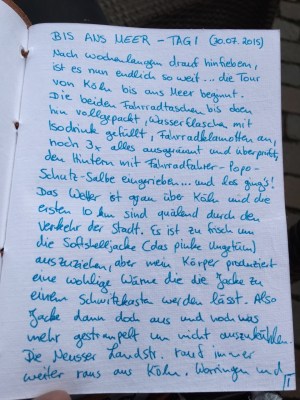 BIS ANS MEER - TAG 1 (30.07.2015)
Nach wochenlangem drauf hinfiebern,
ist es nun endlich so weit... die Tour
von Köln bis ans Meer beginnt.
Die beiden Fahrradtaschen bis oben
hin vollgepackt, Wasserflasche mit
Isodrink gefüllt, Fahrradklamotten an,
noch 3x alles ausgeräumt und überprüft,
den Hintern mit Fahrradfahrer-Popo-
Schutz-Salbe eingerieben... und los ging's!
Das Wetter ist grau über Köln und die
ersten 10 km sind quälend durch den
Verkehr der Stadt. Es ist zu frisch um
die Softshelljacke (das pinke Ungetüm)
auszuziehen, aber mein Körper produziert
eine wohlige Wärme die die Jacke zu
einem Schwitzkasten werden lässt. Also
Jacke dann doch aus und noch was
mehr gestrampelt um nicht auszukühlen.
Die Neusser Landstr. rauf immer
weiter raus aus Köln. Worringen und
1